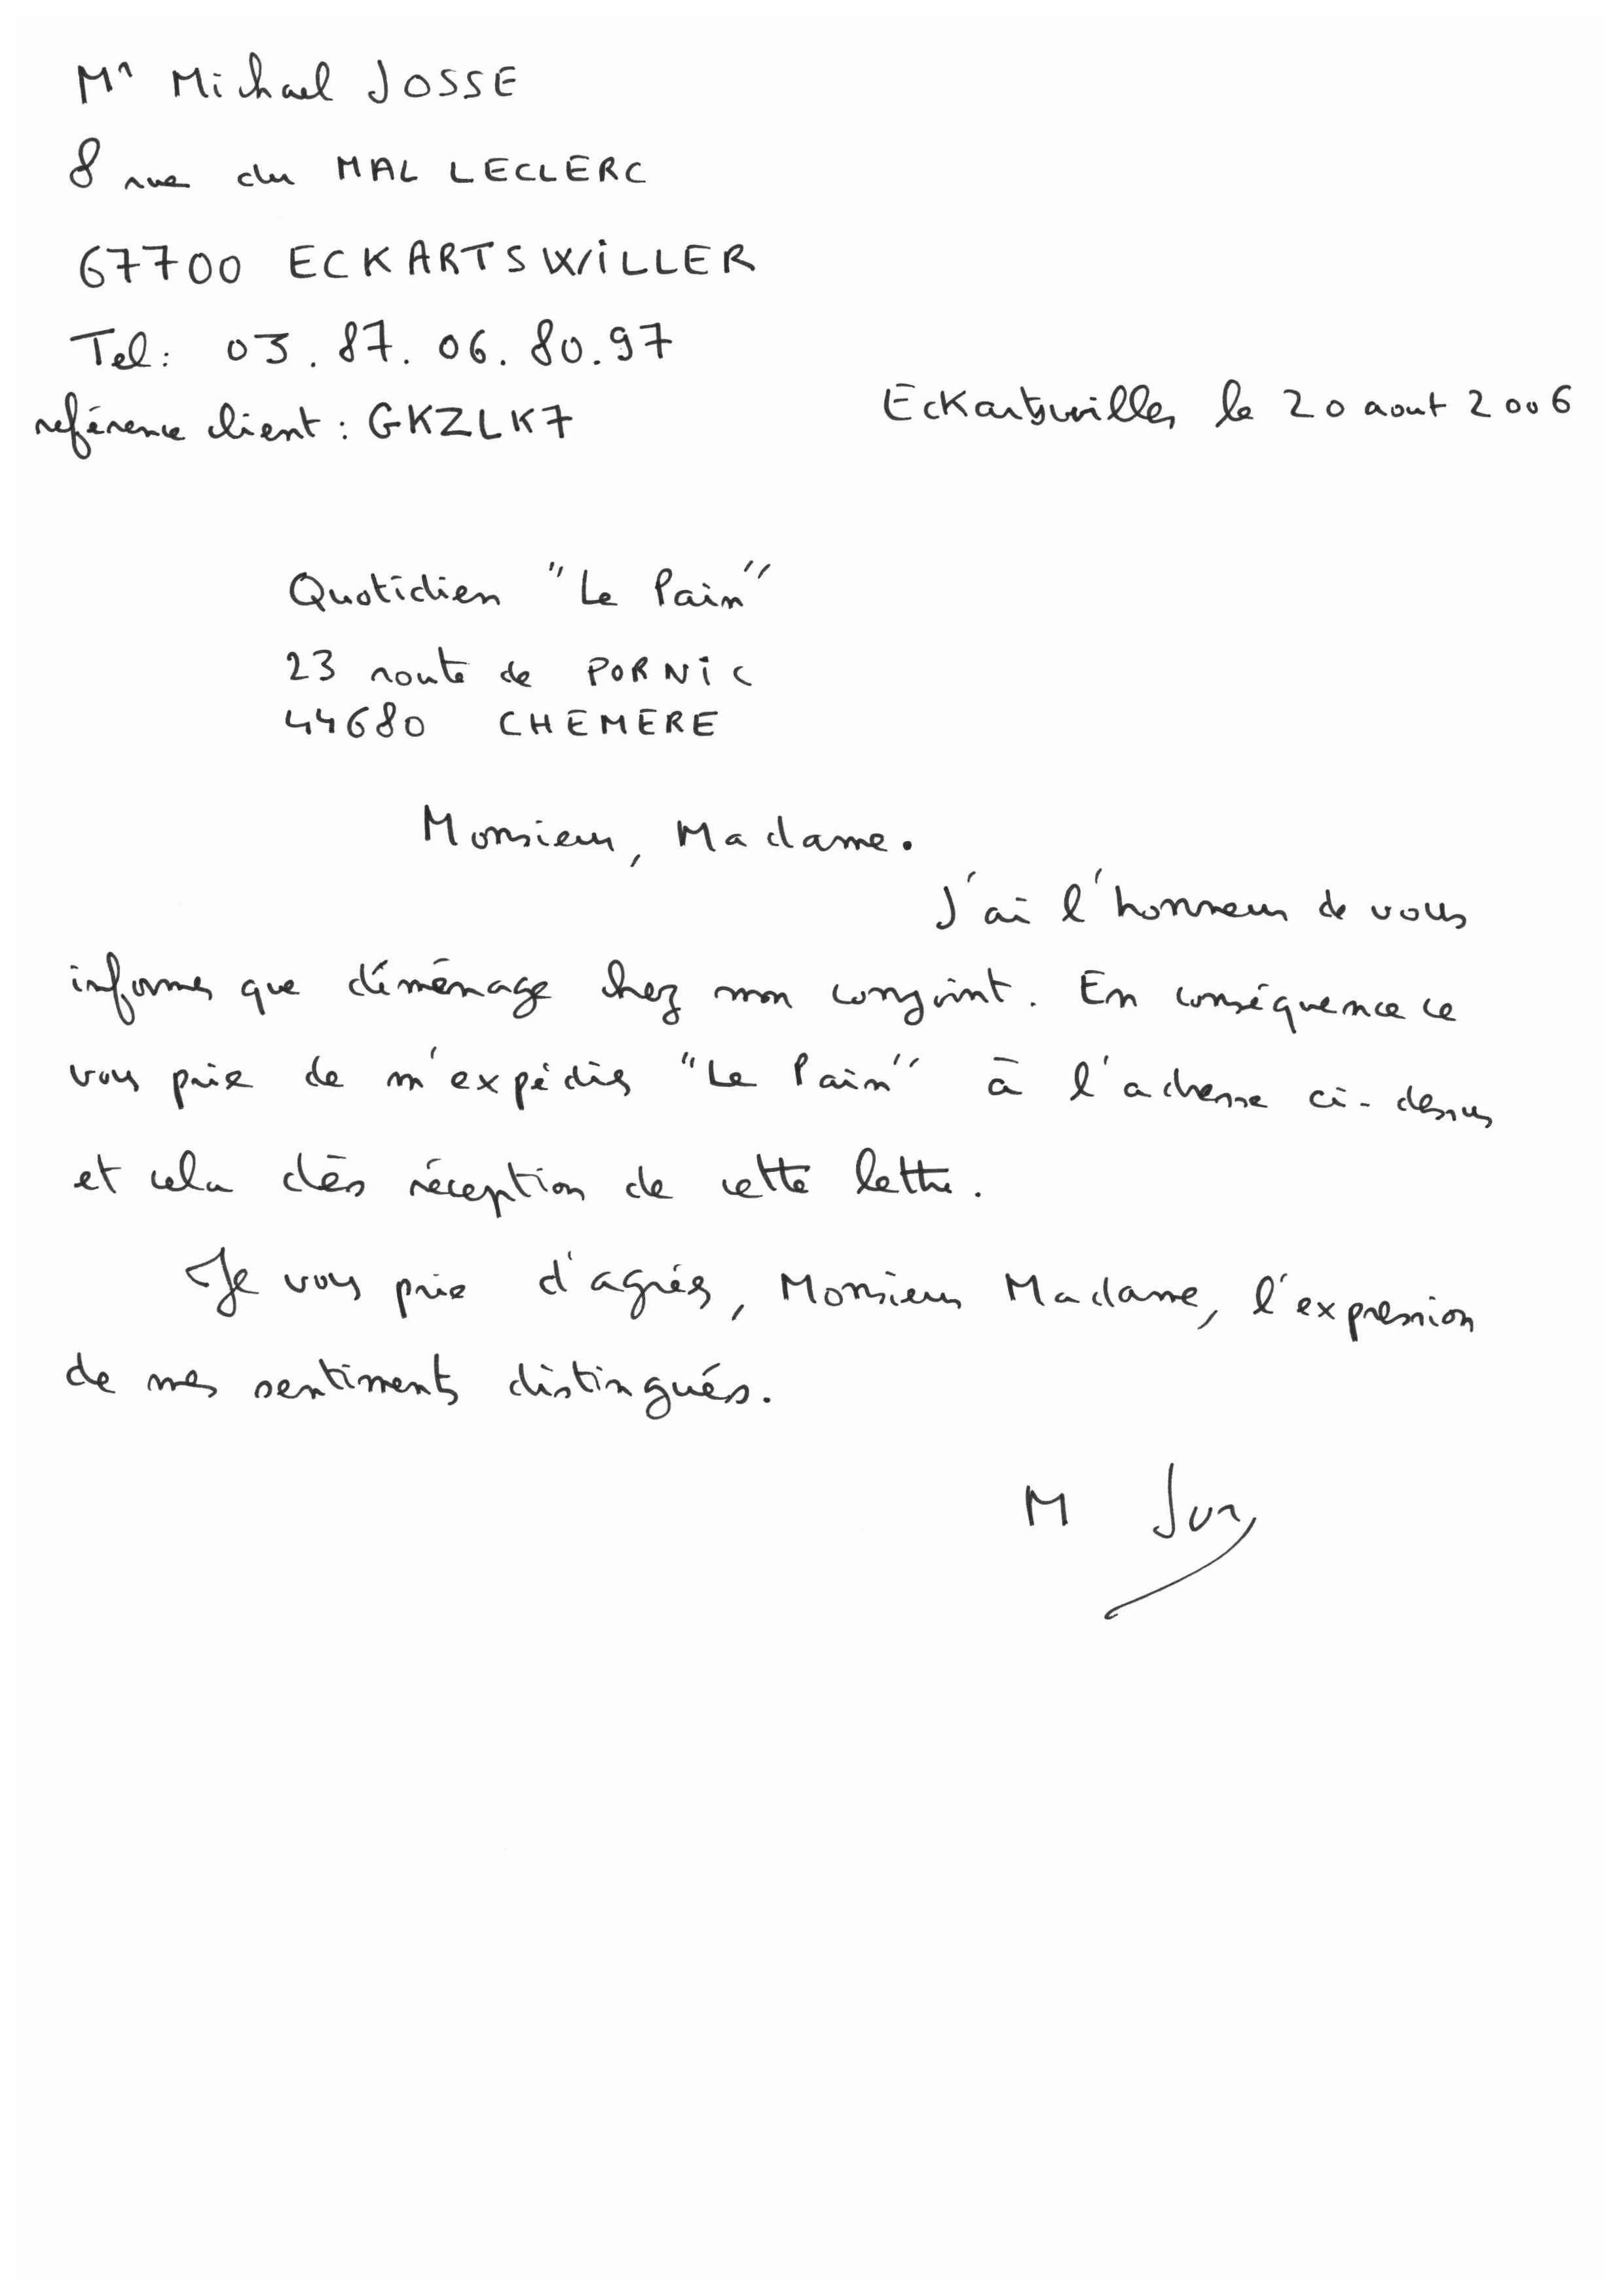 Mr Michael JOSSE
8 rue du MAL LECLERC
67700 ECKARTSWILLER
Tel: 03.87.06.80.97
reférence client : GKZLK7
Eckartswiller le 20 aout 2006
Quotidien "Le Pain"
23 route de PORNIC
44680 CHEMERE
Monsieur, Madame.
J'ai l'honneur de vous
informer que déménage chez mon conjoint. En conséquence ce
vous prie de m'expédier "Le Pain" à l'adresse ci-dessus
et cela dès réception de cette lettre.
Je vous prie d'agréer, Monsieur Madame, l'expression
de mes sentiments distingués.
M